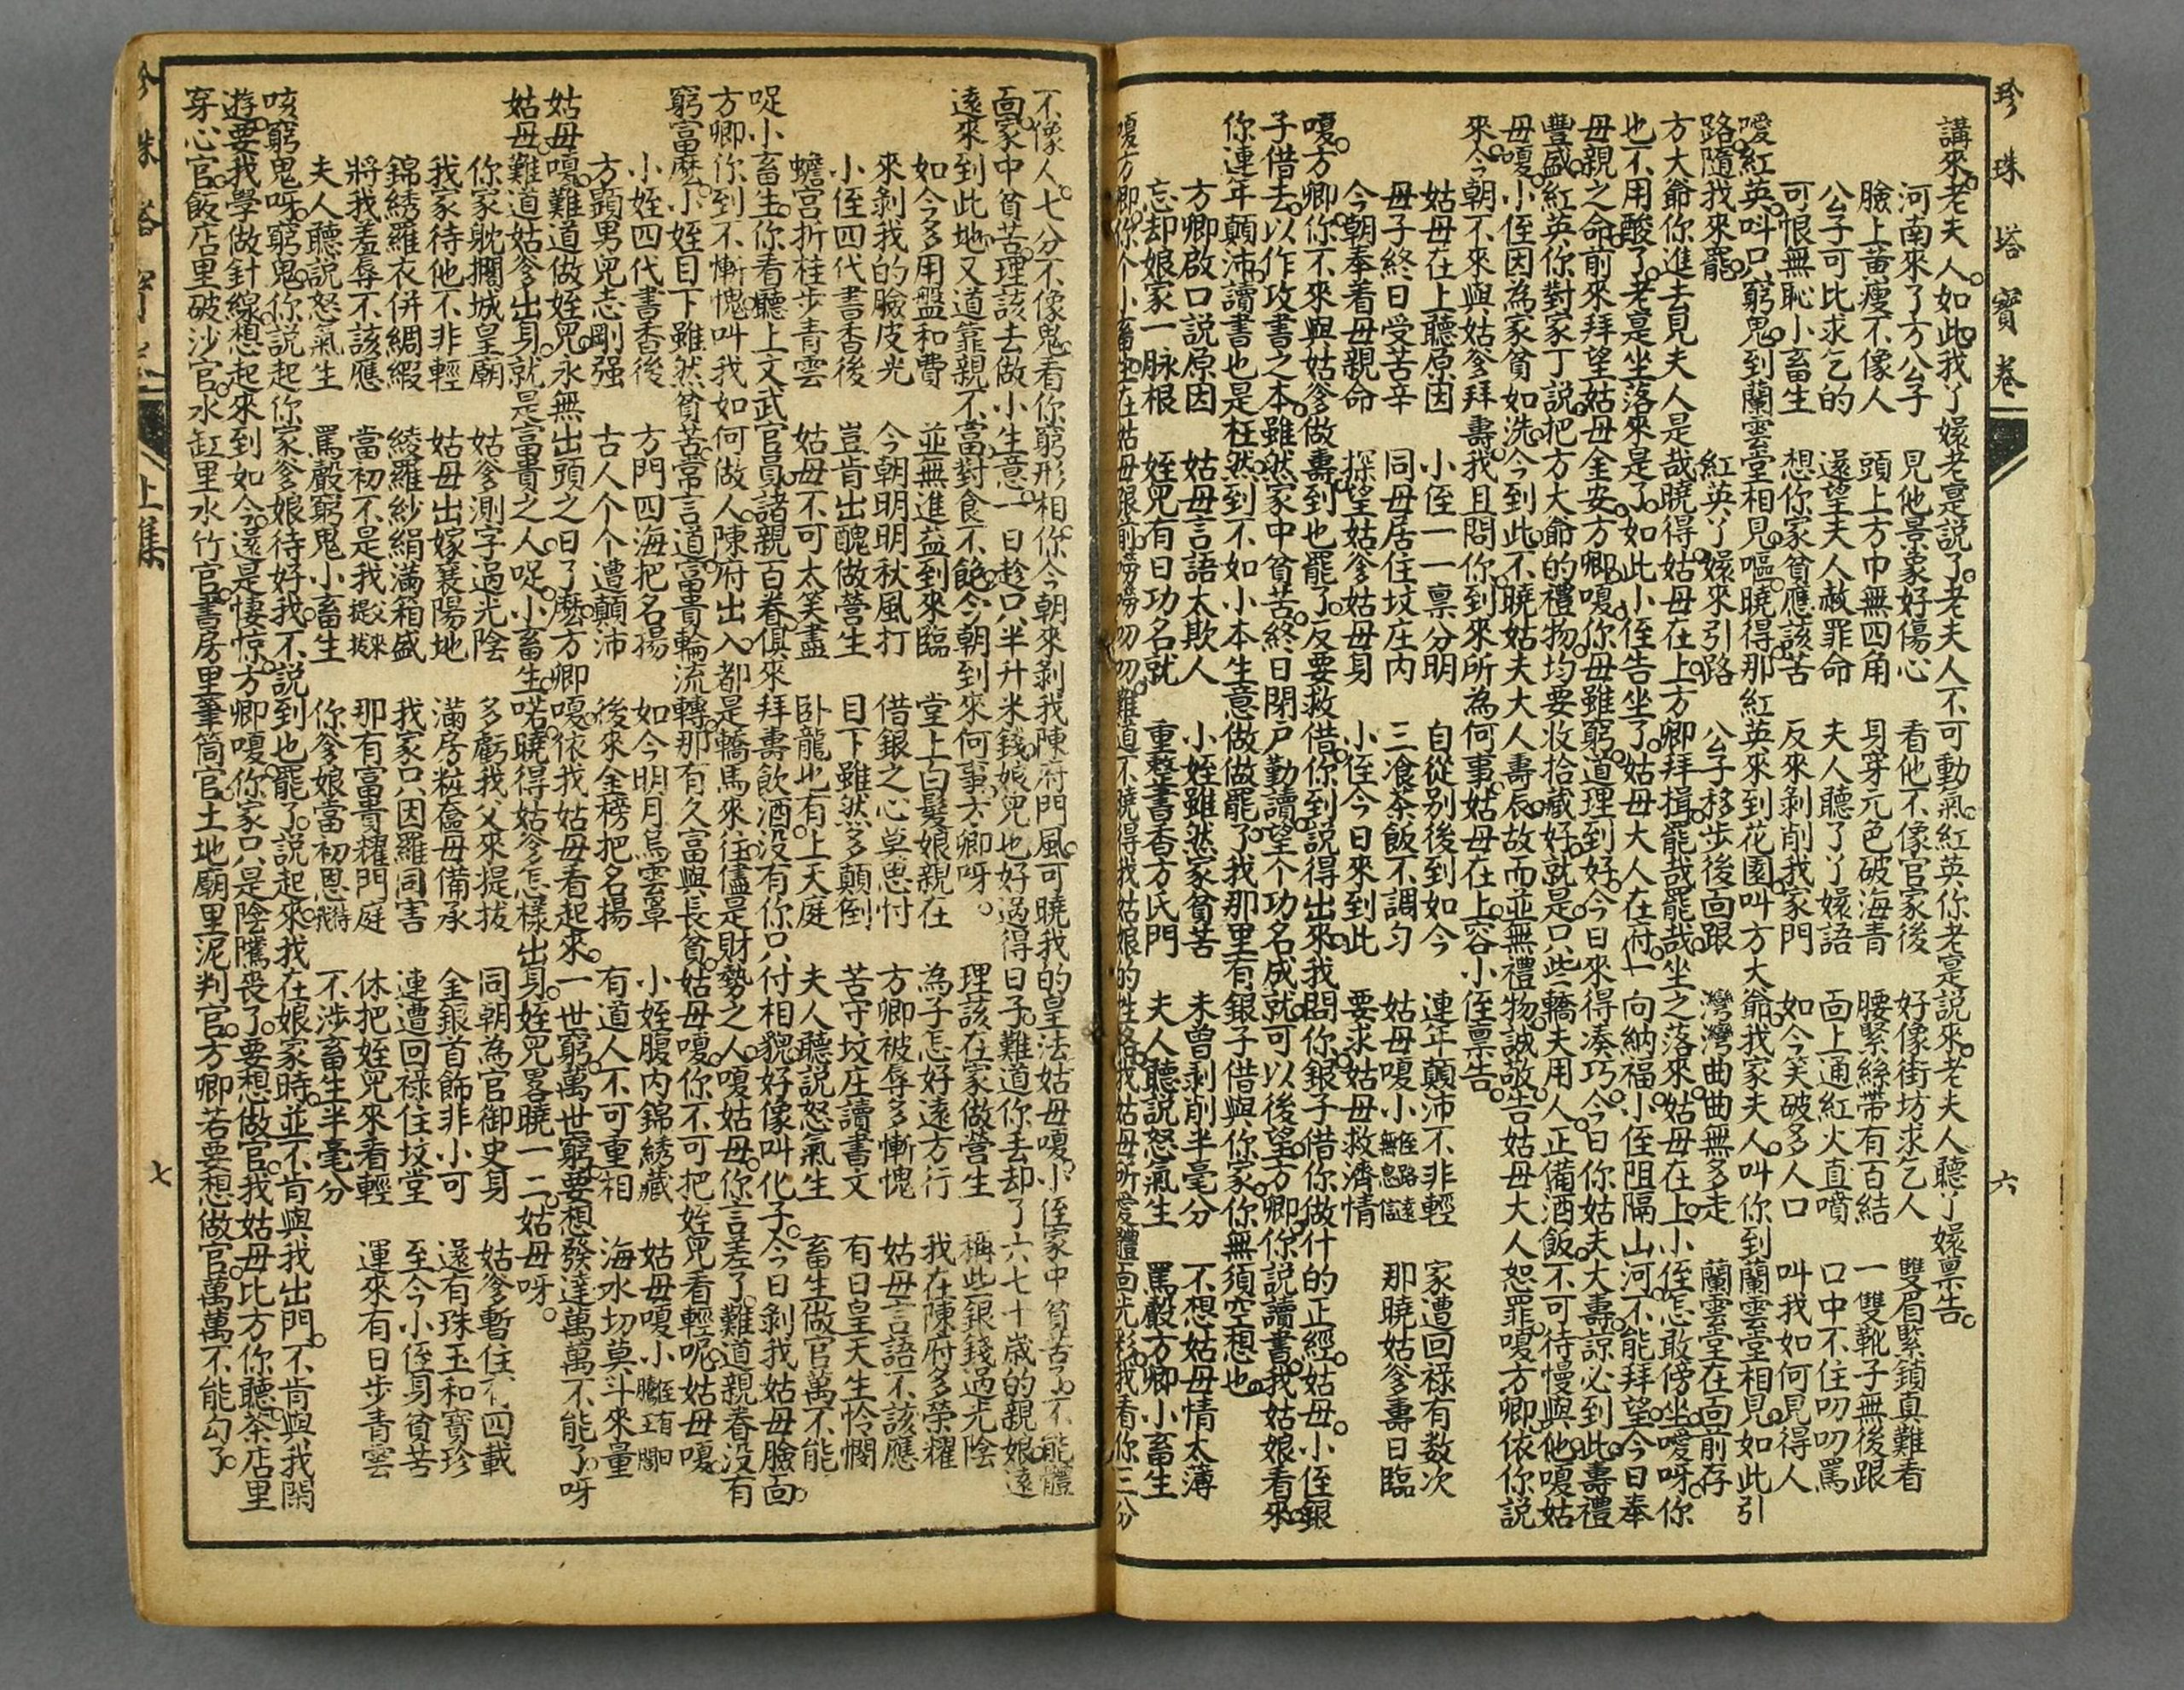 珍珠塔寶卷
六
講來。老夫人。如此。我丫嬛老寔説了。老夫人不可動氣。紅英你老寔説來。老夫人聽丫嬛禀告。
河南來了方公子　見他景象好傷心　看他不像官家後　好像街坊求乞人　雙眉緊鎖真難看
臉上黃瘦不像人　頭上方巾無四角　身穿元色破海青　腰緊絲帶有百結　一雙靴子無後跟
公子可比求乞的　還望夫人赦罪命　夫人聽了丫嬛語　面上通紅火直噴　口中不住叨叨罵
可恨無恥小畜生　想你家貧應該苦　反來剝削我家門　如今笑破多人口　叫我如何見得人
噯紅英。叫只窮鬼。到蘭雲堂相見。嘔。曉得那紅英來到花園。叫方大爺。我家夫人。叫你到蘭雲堂相見。如此引
路。隨我來罷。　紅英丫嬛來引路　公子移步後面跟　灣灣曲曲無多走　蘭雲堂在面前存
方大爺你進去見夫人是哉。曉得。姑母在上。方卿拜揖。罷哉罷哉。坐之落來。姑母在上。小侄怎敢傍坐。噯呀。你
也不用酸了。老寔坐落來是了。如此小侄告坐了。姑母大人在府。一向納福。小侄阻隔山河。不能拜望。今日奉
母親之命。前來拜望姑母金安。方卿嗄。你母雖窮。道理到好。今日來得湊巧。今日你姑夫大壽。諒必到此。壽禮
豐盛。紅英你對家丁説。把方大爺的禮物均要收拾藏好。就是只些轎夫用人。正備酒飯。不可待慢與他。嗄姑
母嗄。小侄因為家貧如洗。今到此。不曉姑夫大人壽辰。故而並無禮物。誠敬告姑母大人恕罪。嗄方卿。依你説
來。今朝不來與姑爹拜壽。我且問你。到來所為何事。姑母在上。容小侄禀告。
姑母在上聽原因　小侄一一禀分明　自從别後到如今　連年顛沛不非輕　家遭回祿有数次
母子終日受苦辛　同母居住坟庄内　三飡茶飯不調匀　姑母嗄小侄路遠無息信　那曉姑爹壽日臨
今朝奉着母親命　探望姑爹姑母身　小侄今日來到此　要求姑母救濟情
嗄。方卿。你不來與姑爹做壽。到也罷了。反要救借。你到説得出來。我問你。銀子借你做什的正經。姑母。小侄銀
子借去。以作攻書之本。雖然家中貧苦。終日閉户勤讀。望个功名成就。可以後望。方卿。你説讀書。我姑娘看來。
你連年顛沛。讀書也是枉然。到不如小本生意。做做罷了。我那里有銀子借與你家。你無須空想也。
方卿啟口説原因　姑母言語太欺人　小姪雖然家貧苦　未曾剥削半毫分　不想姑母情太薄
忘却娘家一脉根　姪兒有日功名就　重整書香方氏門　夫人聽説怒氣生　罵嚴方卿小畜生
嗄方卿。你个小畜生。在姑母跟前。嘮嘮叨叨。難道不曉得我姑娘的性格。我姑母所愛體面光彩。我看你三分
不像人。七分不像鬼。看你窮形相。你今朝來剥我陳府門風。可曉我的皇法。姑母嗄。小侄家中貧苦了。不能體
面。家中貧苦。理該去做小生意。一日趁只半升米錢。娘兒也好過得日子。難道你丢却了六七十歲的親娘。遠
遠來到此地。又道靠親不富。對食不飽。今朝到來何事。方卿呀。　理該在家做營生　稱些銀錢過光陰
如今多用盤和費　並無進益到來臨　堂上白髮娘親在　為子怎好遠方行　我在陳府多榮耀
來剝我的臉皮光　今朝明明秋風打　借銀之心莫思忖　方卿被辱多慚愧　姑母言語不該應
小侄四代書香後　豈肯出醜做營生　目下雖然多顛倒　苦守坟庄讀書文　有日皇天生怜憫
蟾宫折桂步青雲　姑母不可太笑盡　卧龍也有上天庭　夫人聽説怒氣生　畜生做官萬不能
呸小畜生。你看廳上文武官員。諸親百眷俱來拜壽飲酒。没有你只付相貌。好像叫化子。今日剥我姑母臉面。
方卿你到不慚愧。叫我如何做人。陳府出入。都是轎馬來往。儘是財勢之人。嗄姑母。你言差了。難道親眷没有
窮富麽。小姪目下雖然貧苦。常言道。富貴輪流轉。那有久富與長貧。姑母嗄。你不可把姪兒看輕。呢。姑母嗄
小姪四代書香後　方門四海把名揚　如今明月烏雲罩　小姪腹内錦綉藏　姑母嗄小
方顕男兒志剛强　古人个个遭顛沛　後來金榜把名揚　有道人不可重相　海水切莫斗來量
姑母嗄。難道做姪兒。永無出頭之日了麽。方卿嗄。依我姑母看起來。一世窮。萬世窮。要想發達。萬萬不能了。呀
姑母。難道姑爹出身。就是富貴之人。呸。小畜生。喏。曉得姑爹怎樣出身。姪兒畧曉一二。姑母呀。
你家躭擱城皇廟　姑爹測字過光陰　多虧我父來提拔　同朝為官御史身　姑爹暫住有四載
我家待他不非輕　姑母出嫁襄陽地　滿房粧奩母備承　金銀首飾非小可　還有珠玉和寶珍
錦綉羅衣併綢緞　綾羅紗絹滿箱盛　我家只因羅同害　連遭回祿住坟堂　至今小侄身貧苦
將我羞辱不該應　當初不是我提拔　那有富貴耀門庭　休把姪兒來看輕　運來有日步青雲
夫人聽説怒氣生　罵嚴窮鬼小畜生　你爹娘當初恩　不涉畜生半毫分
咳。窮鬼呀。窮鬼。你説起你家爹娘待好我。不説到也罷了。説起來。我在娘家時。並不肯與我出門。不肯與我閑
遊。要我學做針線。想起來到如今。還是悽惊。方卿嗄。你家只是陰隲喪了。要想做官。我姑母比方你聽。茶店里
穿心官。飯店里破沙官。水缸里水竹官。書房里筆筒官。土地廟里泥判官。方卿若要想做官。萬萬不能勾了。
珍珠塔寶卷
上集
七